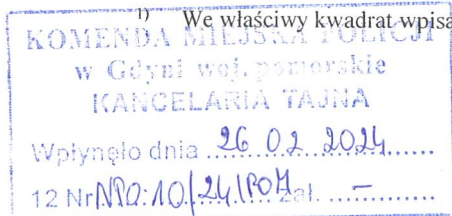 1) We właściwy kwadrat wpisa
KOMENDA MIEJSKA POLICJI
w Gdyni woj. pomorskie
KANCELARIA TAJNA
Wpłynęło dnia 26 02 2024
12 Nr NPO.10/24/POM zał. –